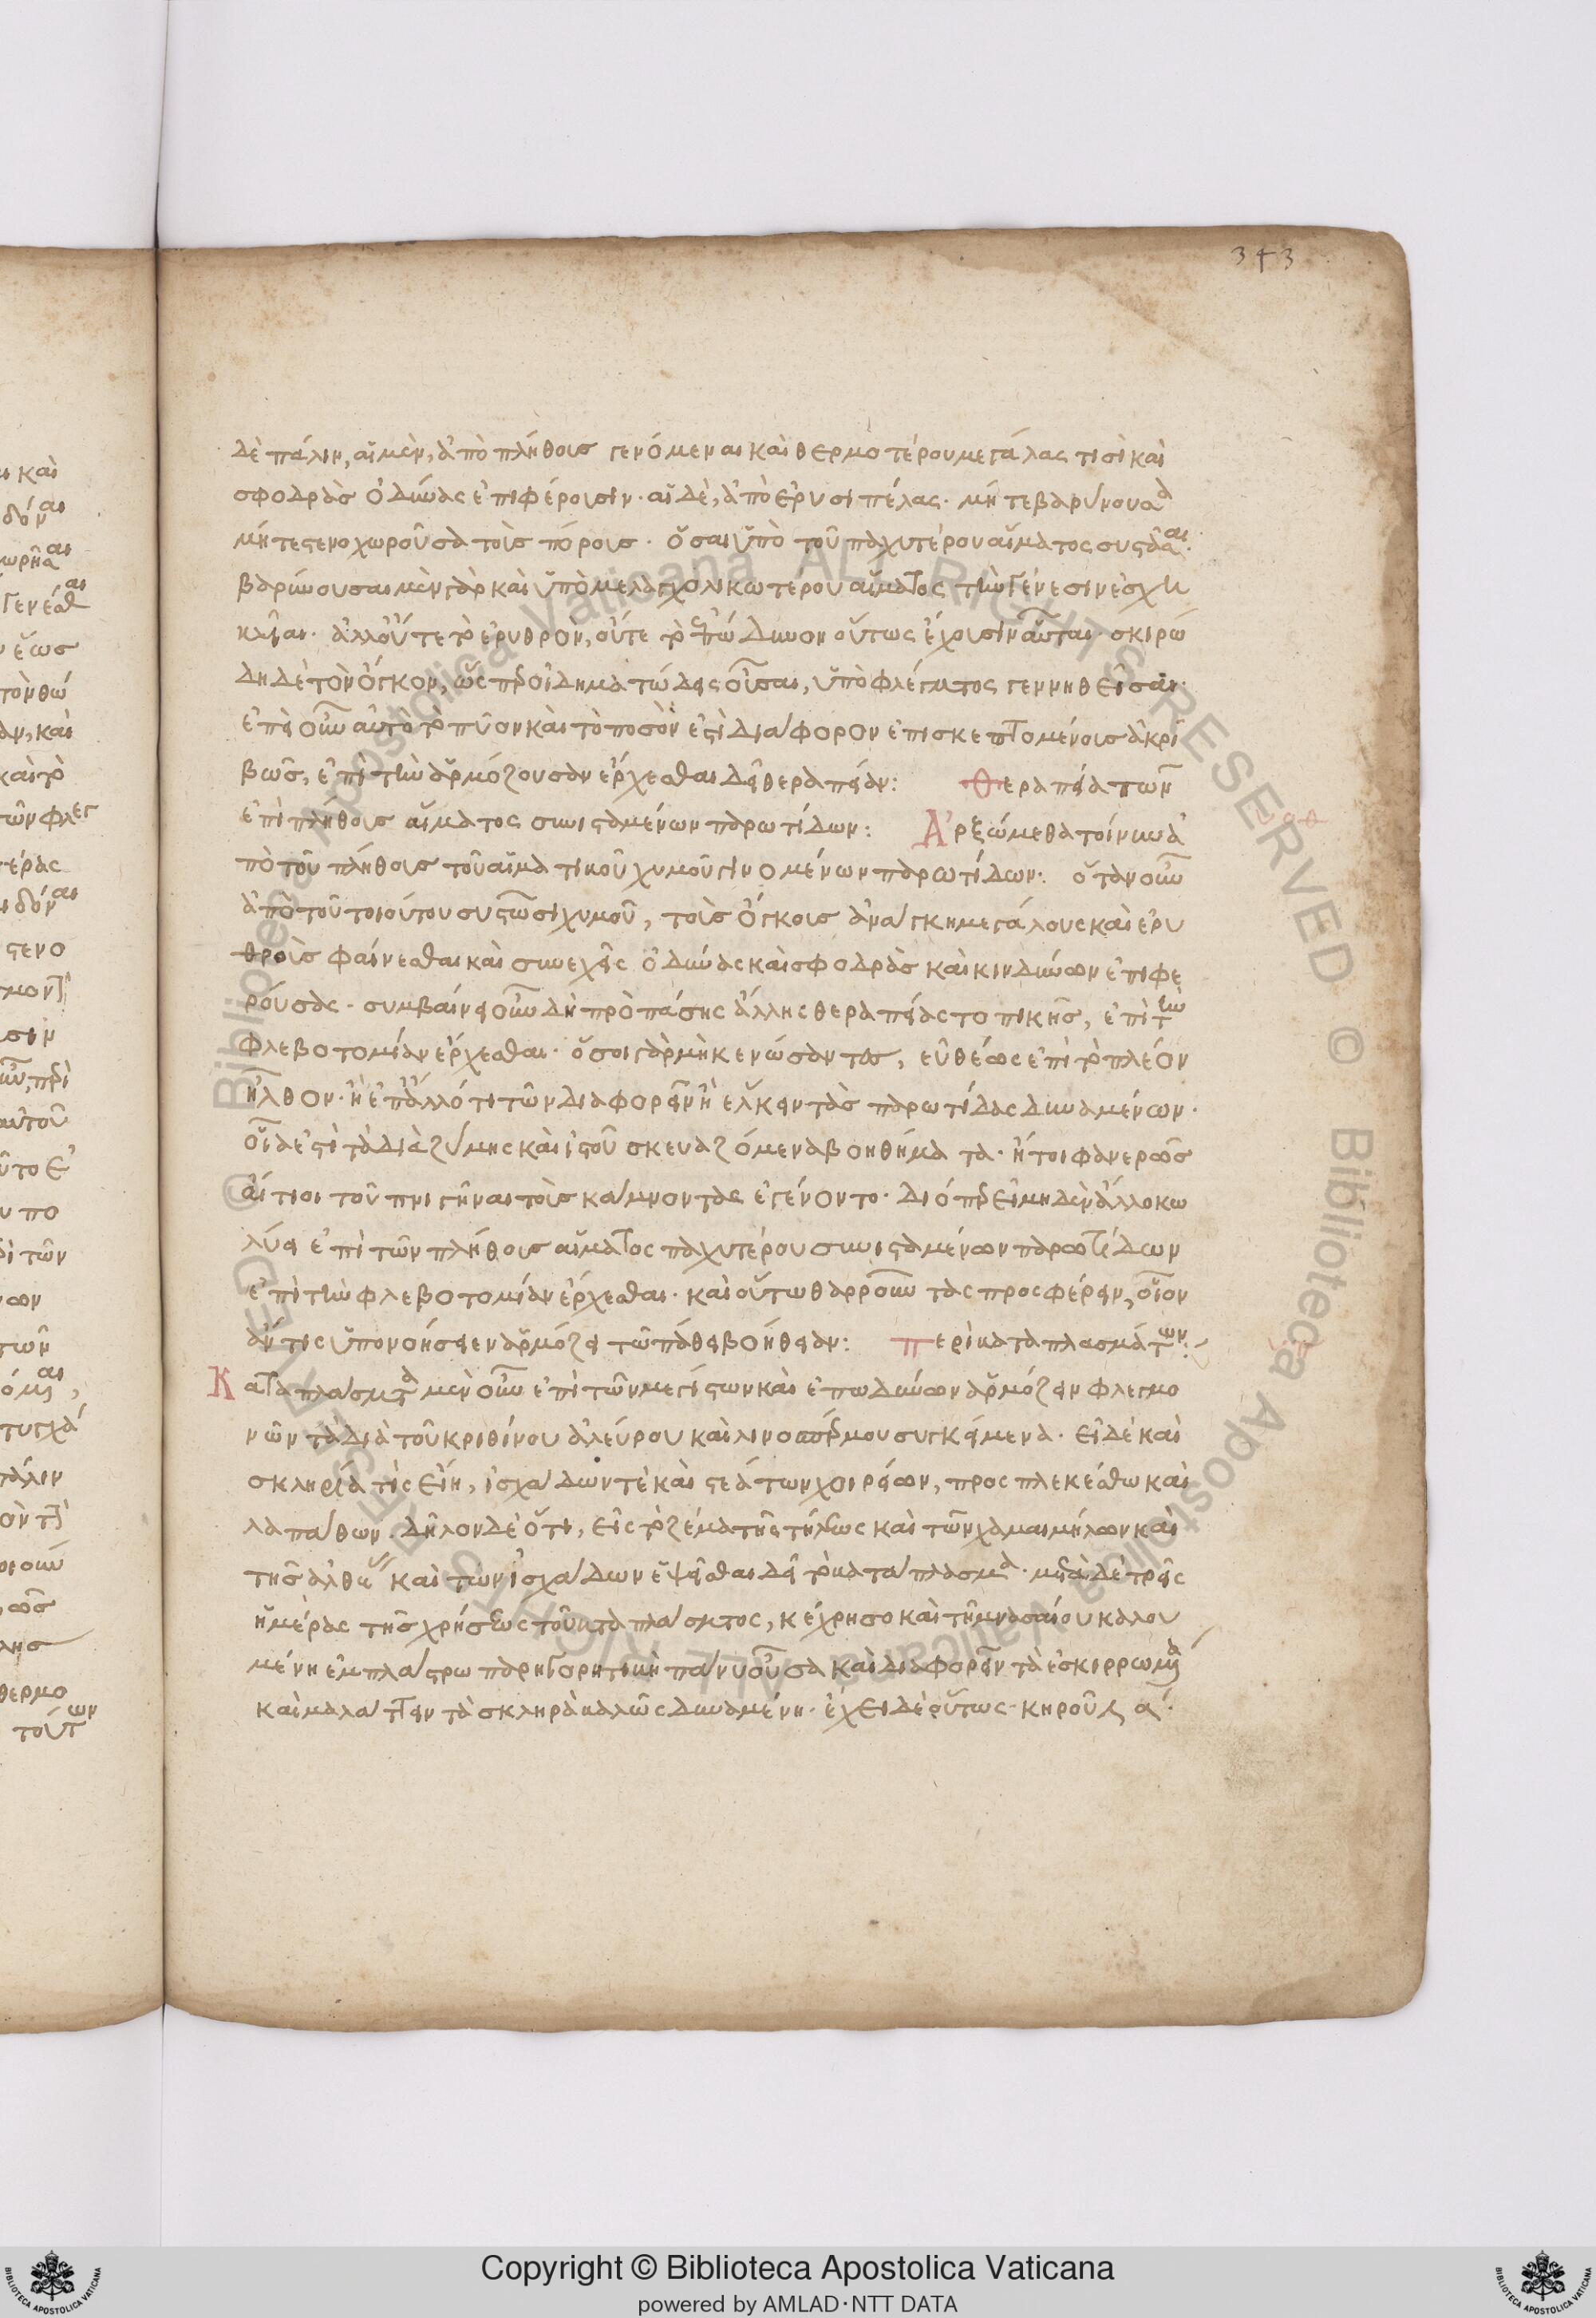 343
δὲ πάλιν, αἱ μὲν, ἀπὸ πλήθους γενόμεναι καὶ θερμοτέρου μεγάλας τισὶ καὶ
σφοδρὰς ὀδύνας ἐπιφέρουσιν· αἱ δὲ, ἀπὸ ἐρυσιπέλας· μήτε βαρύνουσαι
μήτε στενοχωροῦσαι τοὺς πόρους· ὅσαι ὑπὸ τοῦ παχυτέρου αἵματος συστᾶσαι·
βαρύνουσαι μὲν γὰρ καὶ ὑπὸ μελαγχολικωτέρου αἵματος τὴν γένεσιν ἐσχη
κυῖαι· ἀλλ' οὔτε τὸ ἐρυθρὸν, οὔτε τὸ ἐπώδυνον οὕτως ἔχουσιν αὗται· σκιρώ
δη δὲ τὸν ὄγκον, ὡς περ οἰδηματώδεις οὖσαι, ὑπὸ φλέγματος γεννηθεῖσαι·
ἐπεὶ οὖν αὐτὸ τὸ πῦον καὶ τὸ ποσὸν ἐστὶ διάφορον ἐπισκεπτομένους ἀκρι
βῶς, ἐπὶ τὴν ἁρμόζουσαν ἔρχεσθαι δεῖ θεραπείαν: Θεραπεία τῶν
ἐπὶ πλήθους αἵματος συνισταμένων παρωτίδων: Ἀρξώμεθα τοίνυν ἀ
πὸ τοῦ πλήθους τοῦ αἱματικοῦ χυμοῦ γινομένων παρωτίδων: ὅταν οὖν
ἀπὸ τοῦ τοιούτου συστῶσι χυμοῦ, τοὺς ὄγκους ἀνάγκη μεγάλους καὶ ἐρυ
θροὺς φαίνεσθαι καὶ συνεχεῖς ὀδύνας καὶ σφοδρὰς καὶ κινδύνων ἐπιφε
ρούσας· συμβαίνει οὖν δὴ πρὸ πάσης ἄλλης θεραπείας τοπικῆς, ἐπὶ τὴν
φλεβοτομίαν ἔρχεσθαι· ὅσοι γὰρ μὴ κενώσαντες, εὐθέως ἐπὶ τὸ πλέον
ἦλθον· ἢ ἐπ' ἄλλό τι τῶν διαφορεῖν ἢ ἕλκειν τὰς παρωτίδας δυναμένων·
οἷα ἐστὶ τὰ διὰ ζύμης καὶ ἰξοῦ σκευαζόμενα βοηθήματα· ἤτοι φανερῶς
αἴτιοι τοῦ πνιγῆναι τοὺς κάμνοντας ἐγένοντο· διό περ εἰ μηδὲν ἄλλο κω
λύει ἐπὶ τῶν πλήθους αἵματος παχυτέρου συνισταμένων παρωτίδων
ἐπὶ τὴν φλεβοτομίαν ἔρχεσθαι· καὶ οὕτω θαρροῦντας προσφέρειν, οἷον
ἄν τις ὑπονοήσειεν ἁρμόζει τῷ πάθει βοήθειαν: Περὶ καταπλασμάτων:
Καταπλάσματα μὲν οὖν ἐπὶ τῶν μεγίστων καὶ ἐπωδύνων ἁρμόζειν φλεγμο
νῶν τὰ διὰ τοῦ κριθίνου ἀλεύρου καὶ λινοσπέρμου συγκείμενα· εἰ δὲ καὶ
σκληρία τίς εἴη, ἰσχάδων τὲ καὶ στεάτων χοιρείων, προσπλεκέσθω καὶ
λαπάθων. δῆλον δὲ ὅτι, εἰς τὸ ζέμα τῆς τήλεως καὶ τῶν χαμαιμήλων καὶ
τῆς ἀλθαίας καὶ τῶν ἰσχάδων ἕψεσθαι δεῖ τὸ κατάπλασμα· μετὰ δὲ τρεῖς
ἡμέρας τῆς χρήσεως τοῦ καταπλάσματος, κέχρησο καὶ τῇ μνασαίου καλου
μένη ἐμπλάστρω παρηγορητικὴ πάνυ οὖσα καὶ διαφορεῖν τὰ ἐσκιρρωμένα
καὶ μαλάττειν τὰ σκληρὰ καλῶς δυναμένη· ἔχει δὲ οὕτως· κηροῦ λι α·